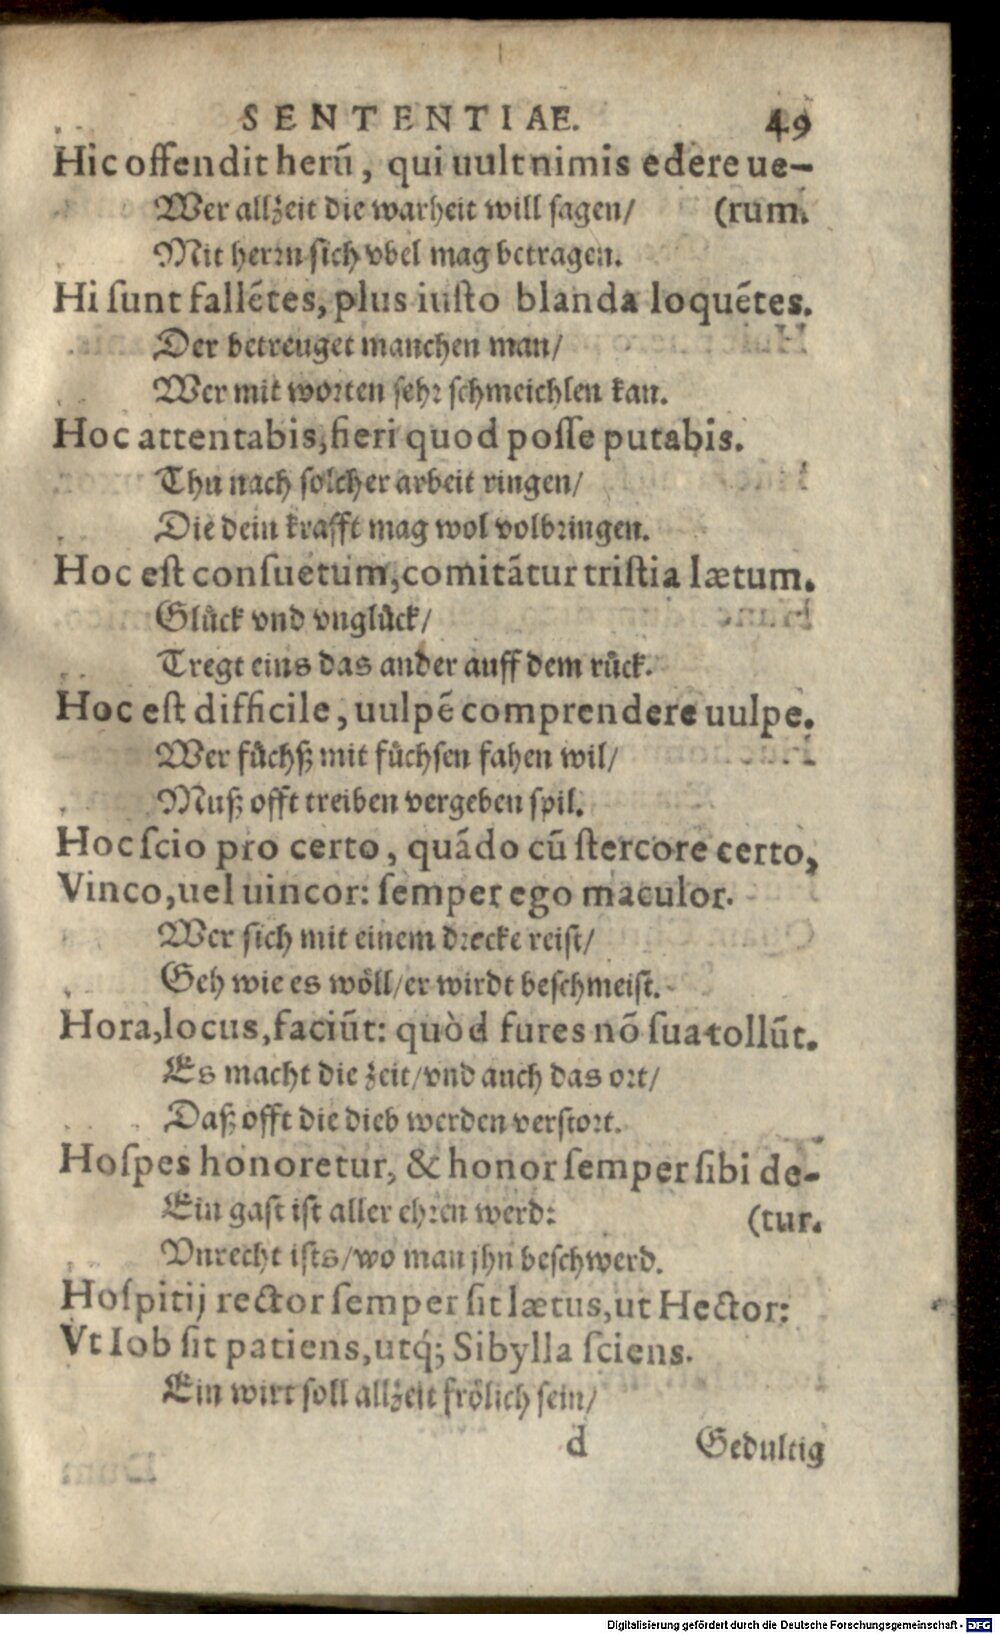 SENTENTIAE. 49
Hic offendit herũ, qui uult nimis edere ue-
Wer allzeit die warheit will sagen/ (rum.
Mit herrn sich vbel mag betragen.
Hi sunt fallẽtes, plus iusto blanda loquẽtes.
Der betreuget manchen man/
Wer mit worten sehr schmeichlen kan.
Hoc attentabis, fieri quod posse putabis.
Thu nach solcher arbeit ringen/
Die dein krafft mag wol volbringen.
Hoc est consuetum, comitãtur tristia lætum.
Glůck vnd vnglůck/
Tregt eins das ander auff dem růck.
Hoc est difficile, uulpẽ comprendere uulpe.
Wer fůchß mit fůchsen fahen wil/
Muß offt treiben vergeben spil.
Hoc scio pro certo, quãdo cũ stercore certo,
Vinco, uel uincor: semper ego maculor.
Wer sich mit einem drecke reist/
Geh wie es wöll/er wirdt beschmeist.
Hora, locus, faciũt: quòd fures nõ sua tollũt.
Es macht die zeit/vnd auch das ort/
Daß offt die dieb werden verstort.
Hospes honoretur, & honor semper sibi de-
Ein gast ist aller ehren werd: (tur.
Vnrecht ists/wo man jhn beschwerd.
Hospitij rector semper sit lætus, ut Hector:
Vt Iob sit patiens, utq́; Sibylla sciens.
Ein wirt soll allzeit frölich sein/
d Gedultig
Digitalisierung gefördert durch die Deutsche Forschungsgemeinschaft - DFG